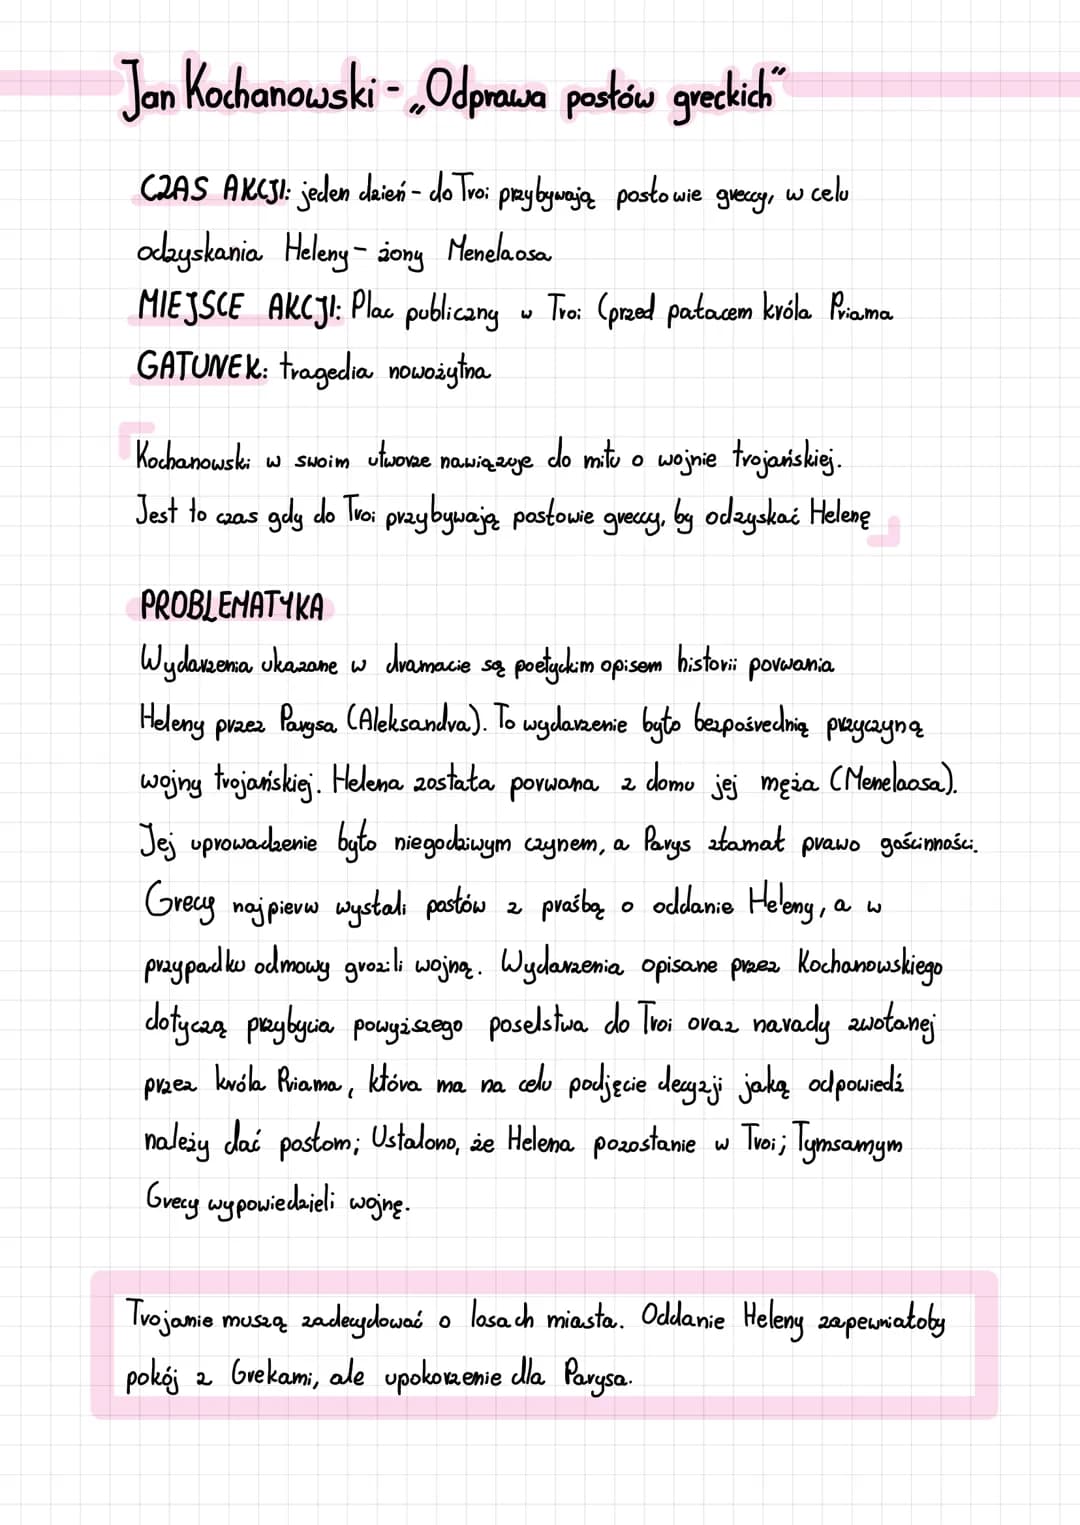 Jan Kochanowski - „Odprawa posłów greckich"
CZAS AKCJI: jeden dzień - do Troi przybywają posłowie greccy, w celu
odzyskania Heleny - żony Menelaosa
MIEJSCE AKCJI: Plac publiczny w Troi (przed pałacem króla Priama
GATUNEK: tragedia nowożytna
Kochanowski w swoim utworze nawiązuje do mitu o wojnie trojańskiej.
Jest to czas gdy do Troi przybywają posłowie greccy, by odzyskać Helenę
PROBLEMATYKA
Wydarzenia ukazane w dramacie są poetyckim opisem historii porwania
Heleny przez Parysa (Aleksandra). To wydarzenie było bezpośrednią przyczyną
wojny trojańskiej. Helena została porwana z domu jej męża (Menelaosa).
Jej uprowadzenie było niegodziwym czynem, a Parys złamał prawo gościnności.
Grecy najpierw wysłali posłów z prośbą o oddanie Heleny, a w
przypadku odmowy grozili wojną. Wydarzenia opisane przez Kochanowskiego
dotyczą przybycia powyższego poselstwa do Troi oraz narady zwołanej
przez króla Priama, która ma na celu podjęcie decyzji jaką odpowiedź
należy dać posłom; Ustalono, że Helena pozostanie w Troi; Tymsamym
Grecy wypowiedzieli wojnę.
Trojanie muszą zadecydować o losach miasta. Oddanie Heleny zapewniałoby
pokój z Grekami, ale upokorzenie dla Parysa.